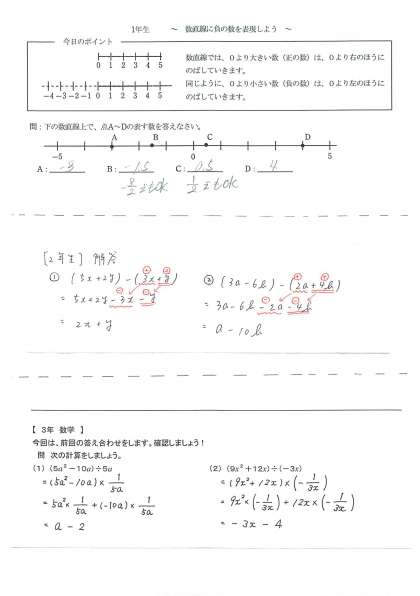 1年生 ～ 数直線に負の数を表現しよう ～
今日のポイント
0 1 2 3 4 5
数直線では、0より大きい数（正の数）は、0より右のほうに
のばしていきます。
-4 -3 -2 -1 0 1 2 3 4 5
同じように、0より小さい数（負の数）は、0より左のほうに
のばしていきます。
問：下の数直線上で、点A～Dの表す数を答えなさい。
A B C D
-5 0 5
A： -3 B： -1.5 C： 0.5 D： 4
-3/2 でもOK 1/2 でもOK
[2年生] 解答
① (5x+2y)-(3x+y)
= 5x+2y-3x-y
= 2x+y
② (3a-6b)-(2a+4b)
= 3a-6b-2a-4b
= a-10b
【 3年 数学 】
今回は、前回の答え合わせをします。確認しましょう！
問 次の計算をしましょう。
(1) (5a²－10a)÷5a
=(5a²-10a)×1/5a
=5a²×1/5a+(-10a)×1/5a
= a-2
(2) (9x²＋12x)÷(－3x)
=(9x²+12x)×(-1/3x)
=9x²×(-1/3x)+12x×(-1/3x)
= -3x-4